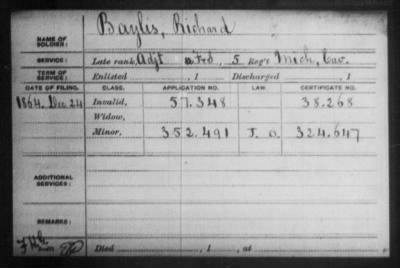 Baylis, Richard
NAME OF SOLDIER:
SERVICE: Late rank, Adjt F&S, 5 Reg't Mich, Cav.
TERM OF SERVICE: Enlisted , 1 Discharged , 1
DATE OF FILING. CLASS. APPLICATION NO. LAW. CERTIFICATE NO.
1864. Dec 24 Invalid, 57.348 38.268
Widow,
Minor, 352.491 J. O. 324.647
ADDITIONAL SERVICES:
REMARKS:
Died , 1 , at